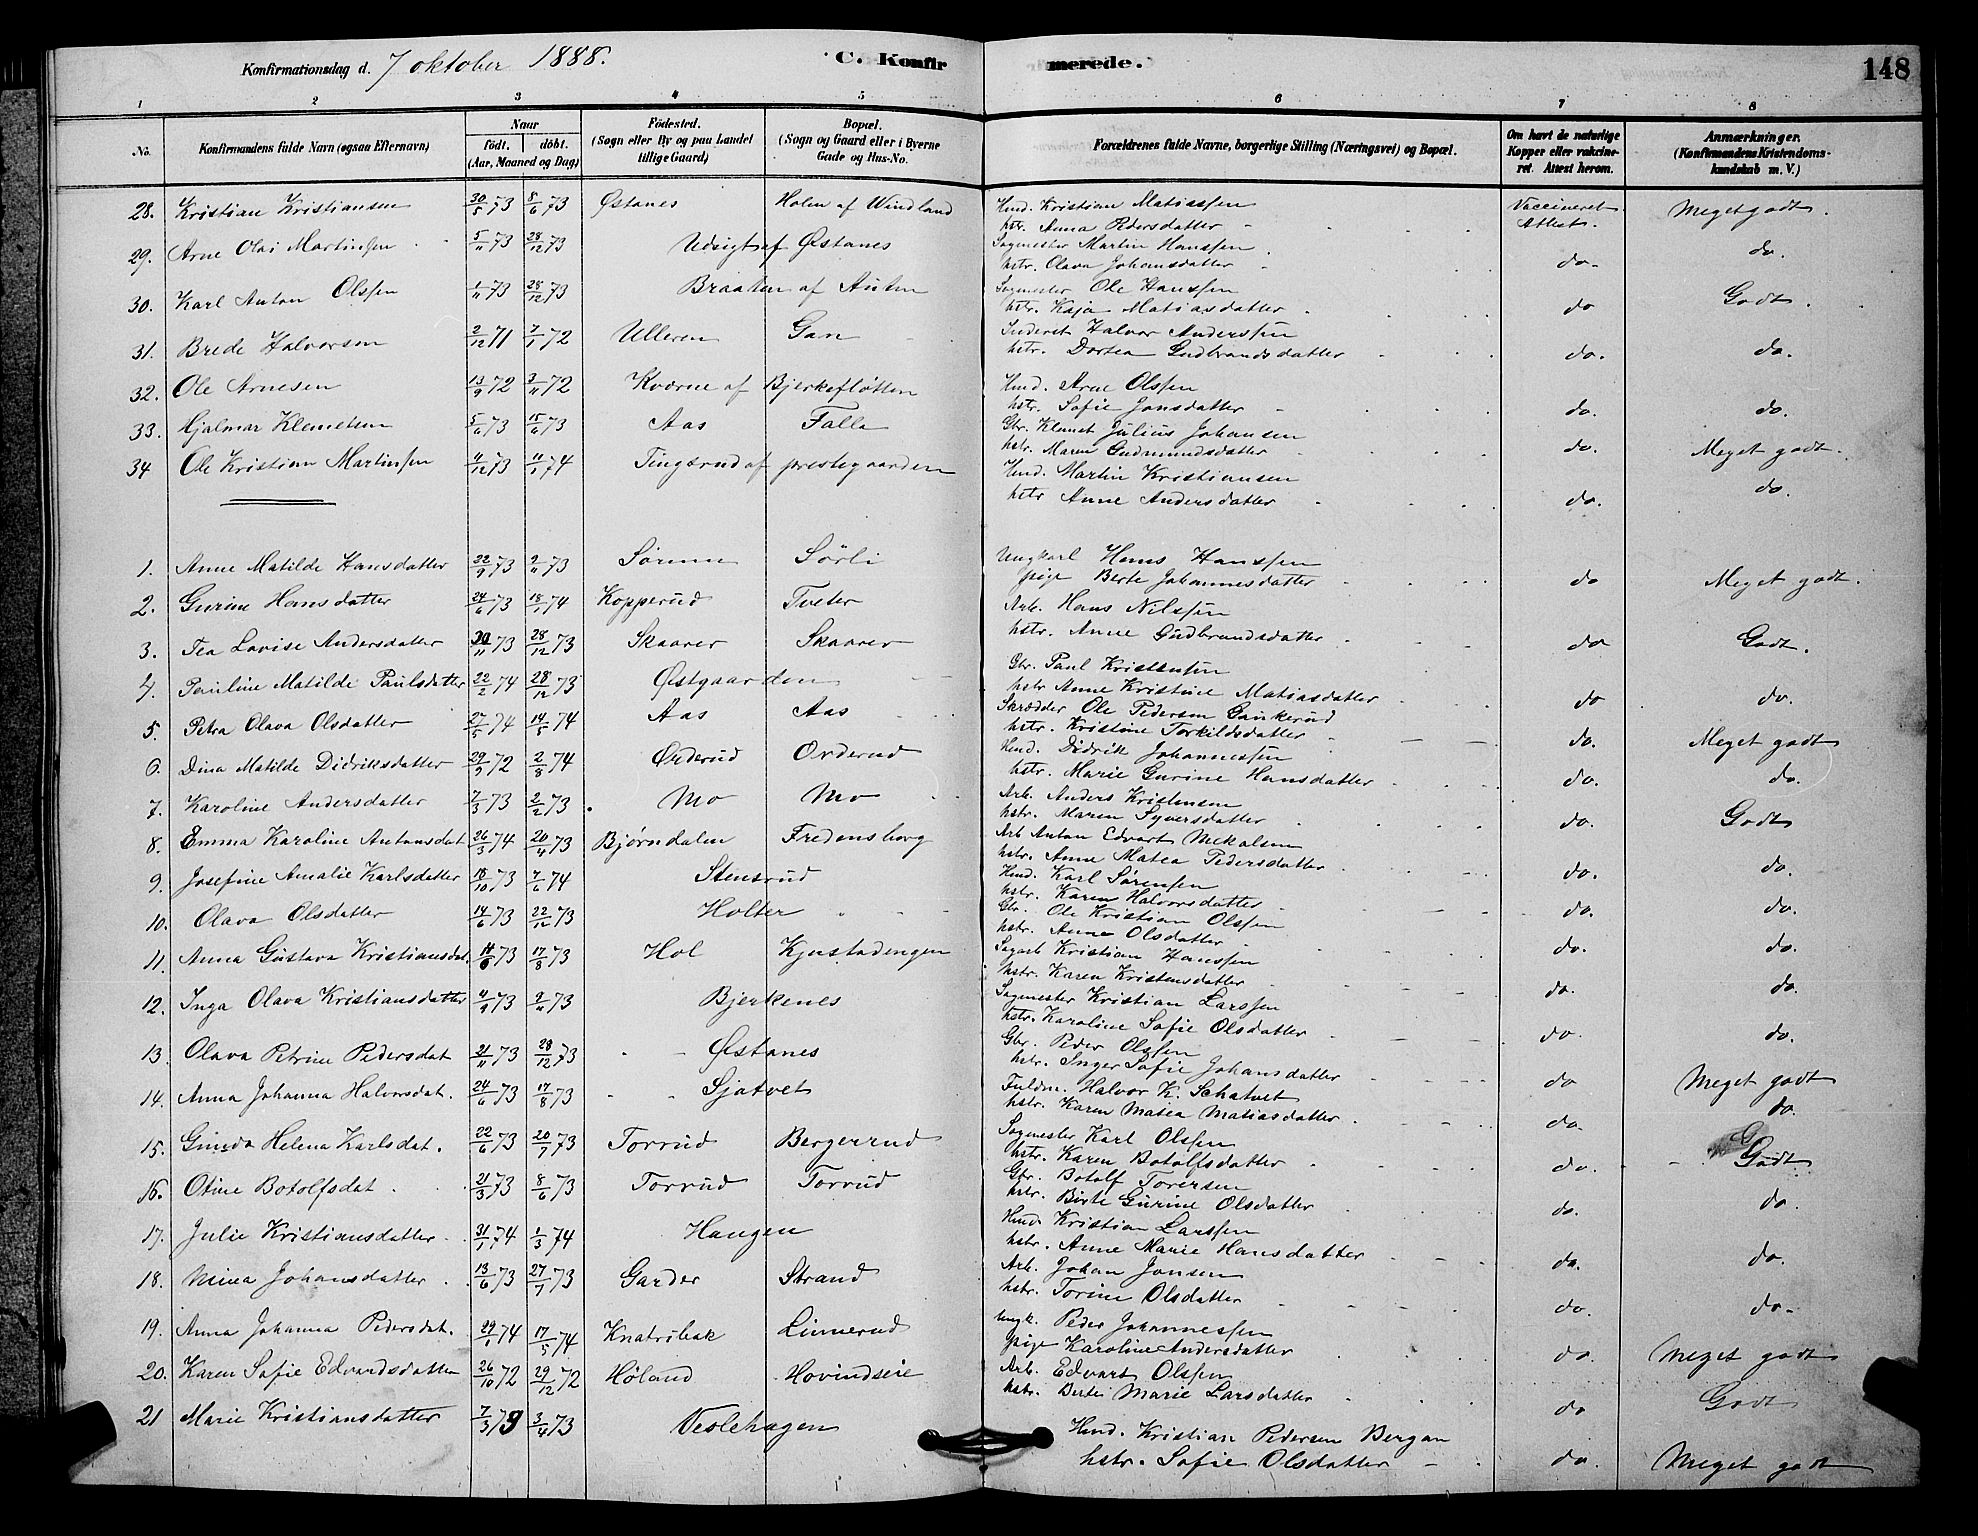 Konfirmationsdag d. 7 oktober 1888. C. Konfirmerede. 148
1 2 3 4 5 6 7 8
No. Konfirmandens fulde Navn (ogsaa Efternavn) Naar født. døbt. (Aar, Maaned og Dag) Fødested. (Sogn eller By og paa Landet tillige Gaard) Bopæl. (Sogn og Gaard eller i Byerne Gade og Hus-No. Forældrenes fulde Navne, borgerlige Stilling (Næringsvei) og Bopæl. Om havt de naturlige Kopper eller vakcineret. Attest herom. Anmærkninger. (Konfirmandens Kristendomskundskab m. V.)
28. Kristian Kristiansen 30/5 73 8/6 73 Østanes Holen af Windland Hmd. Kristian Matiassen Vaccineret Meget godt.
hstr. Anna Pedersdatter Attest.
29. Arne Olai Martinsen 5/11 73 28/12 73 Udsigt af Østanes Sagmester Martin Hanssen do.
hstr. Olava Johansdatter do.
30. Karl Anton Olssen 1/11 73 28/12 73 Braaten af Auten Sagmester Ole Hanssen Godt.
hstr. Kaja Matiasdatter do
31. Brede Halvorsen 2/12 71 7/1 72 Ulleren Gan Inderst Halvor Anderssen
hstr. Dortea Gudbrandsdatter do. do.
32. Ole Arnesen 13/9 72 3/11 72 Kværne af Bjerkefløtten Hmd. Arne Olssen
hstr. Sofie Jonsdatter do. do.
33. Hjalmar Klemetsen 5/6 73 15/6 73 Aas Falla Gbr. Klemet Julius Johansen
hstr. Maren Gudmundsdatter do. Meget godt.
34 Ole Kristian Martinsen 11/12 73 11/1 74 Tingsrud af prestegaarden Hmd. Martin Kristiansen
hstr Anne Andersdatter do. do.
1. Anne Matilde Hansdatter 22/9 73 2/11 73 Sørum Sørli Ungkarl Hans Hanssen
pige Berte Johannesdatter do Meget godt.
2. Gurine Hansdatter 24/6 73 18/1 74 Kopperud Tveter Arb. Hans Nilssen
hstr. Anne Gudbrandsdatter do Godt.
3. Tea Lovise Andersdatter 30/11 73 28/12 73 Skaarer Skaarer
4. Pauline Matilde Paulsdatter 22/2 74 28/12 73 Østgaarden Gbr. Paul Kristensen
hstr Anne Kristine Matiasdatter do do.
5. Petra Olava Olsdatter 27/5 74 14/5 74 Aas Aas Skrædder Ole Pedersen Gankerud
hstr. Kristine Torkildsdatter do. Meget godt
6. Dina Matilde Didriksdatter 29/9 72 2/8 74 Orderud Orderud Hmd. Didrik Johannessen
hstr. Marie Gurine Hansdatter do. do.
7. Karoline Andersdatter 7/3 73 2/2 73 Mo Mo Arb. Anders Kristensen
hstr. Maren Syversdatter do. Godt
8. Emma Karoline Antonsdat 26/3 74 20/4 73 Bjørndalen Fredensborg Arb Anton Edvart Mekalsen
hstr. Anne Matea Pedersdatter do. do.
9. Josefine Amalie Karlsdatter 18/10 73 7/6 74 Stensrud Hmd. Karl Sørensen
hstr. Karen Halvorsdatter do. do.
10. Olava Olsdatter 14/6 73 22/12 73 Holter Gbr. Ole Kristian Olssen
hstr. Anne Olsdatter do. do.
11. Anna Gustava Kristiansdat. 14/6 73 17/8 73 Hol Kjustadengen Sagarb Kristian Hanssen
hstr. Karen Kristensdatter do. do.
12. Inga Olava Kristiansdatter 4/9 73 2/11 73 Bjerkenes Sagmester Kristian Larssen
hstr. Karoline Sofie Olsdatter do. do.
13. Olava Petrine Pedersdat 21/11 73 28/12 73 Østanes Gbr. Peder Olssen
hstr. Inger Sofie Johansdatter do Meget godt
14. Anna Johanna Halvorsdat. 24/6 73 17/8 73 Sjatvet Fuldm. Halvor K. Schatvet
hstr. Karen Matea Matiasdatter do. do.
15. Gunda Helena Karlsdat. 22/6 73 20/7 73 Torrud Bergerud Sagmester Karl Olssen
hstr. Karen Botolfsdatter do. Godt
16. Otine Botolfsdat 21/3 73 8/6 73 Torrud Torrud Gbr. Botolf Torersen
hstr. Birte Gurine Olsdatter do. do.
17. Julie Kristiansdatter 31/1 74 1/3 74 Haugen Hmd Kristian Larssen
hstr. Anne Marie Hansdatter do. do.
18. Mina Johansdatter 13/6 73 27/7 73 Garder Strand Arb. Johan Jonsen
hstr. Torine Olsdatter do. do.
19. Anna Johanna Pedersdat. 29/1 74 17/5 74 Knatribak Linnerud Ungk. Peder Johannessen
pige Karoline Andersdatter do. Meget godt
20. Karen Sofie Edvardsdatter 26/10 72 29/12 72 Høland Hovindseie Arb. Edvart Olssen
hstr. Berte Marie Larsdatter do Godt
21 Marie Kristiansdatter 7/3 73 3/4 73 Veslehagen Hmd. Kristian Pedersen Bergan
hstr. Sofie Olsdatter do. Meget godt